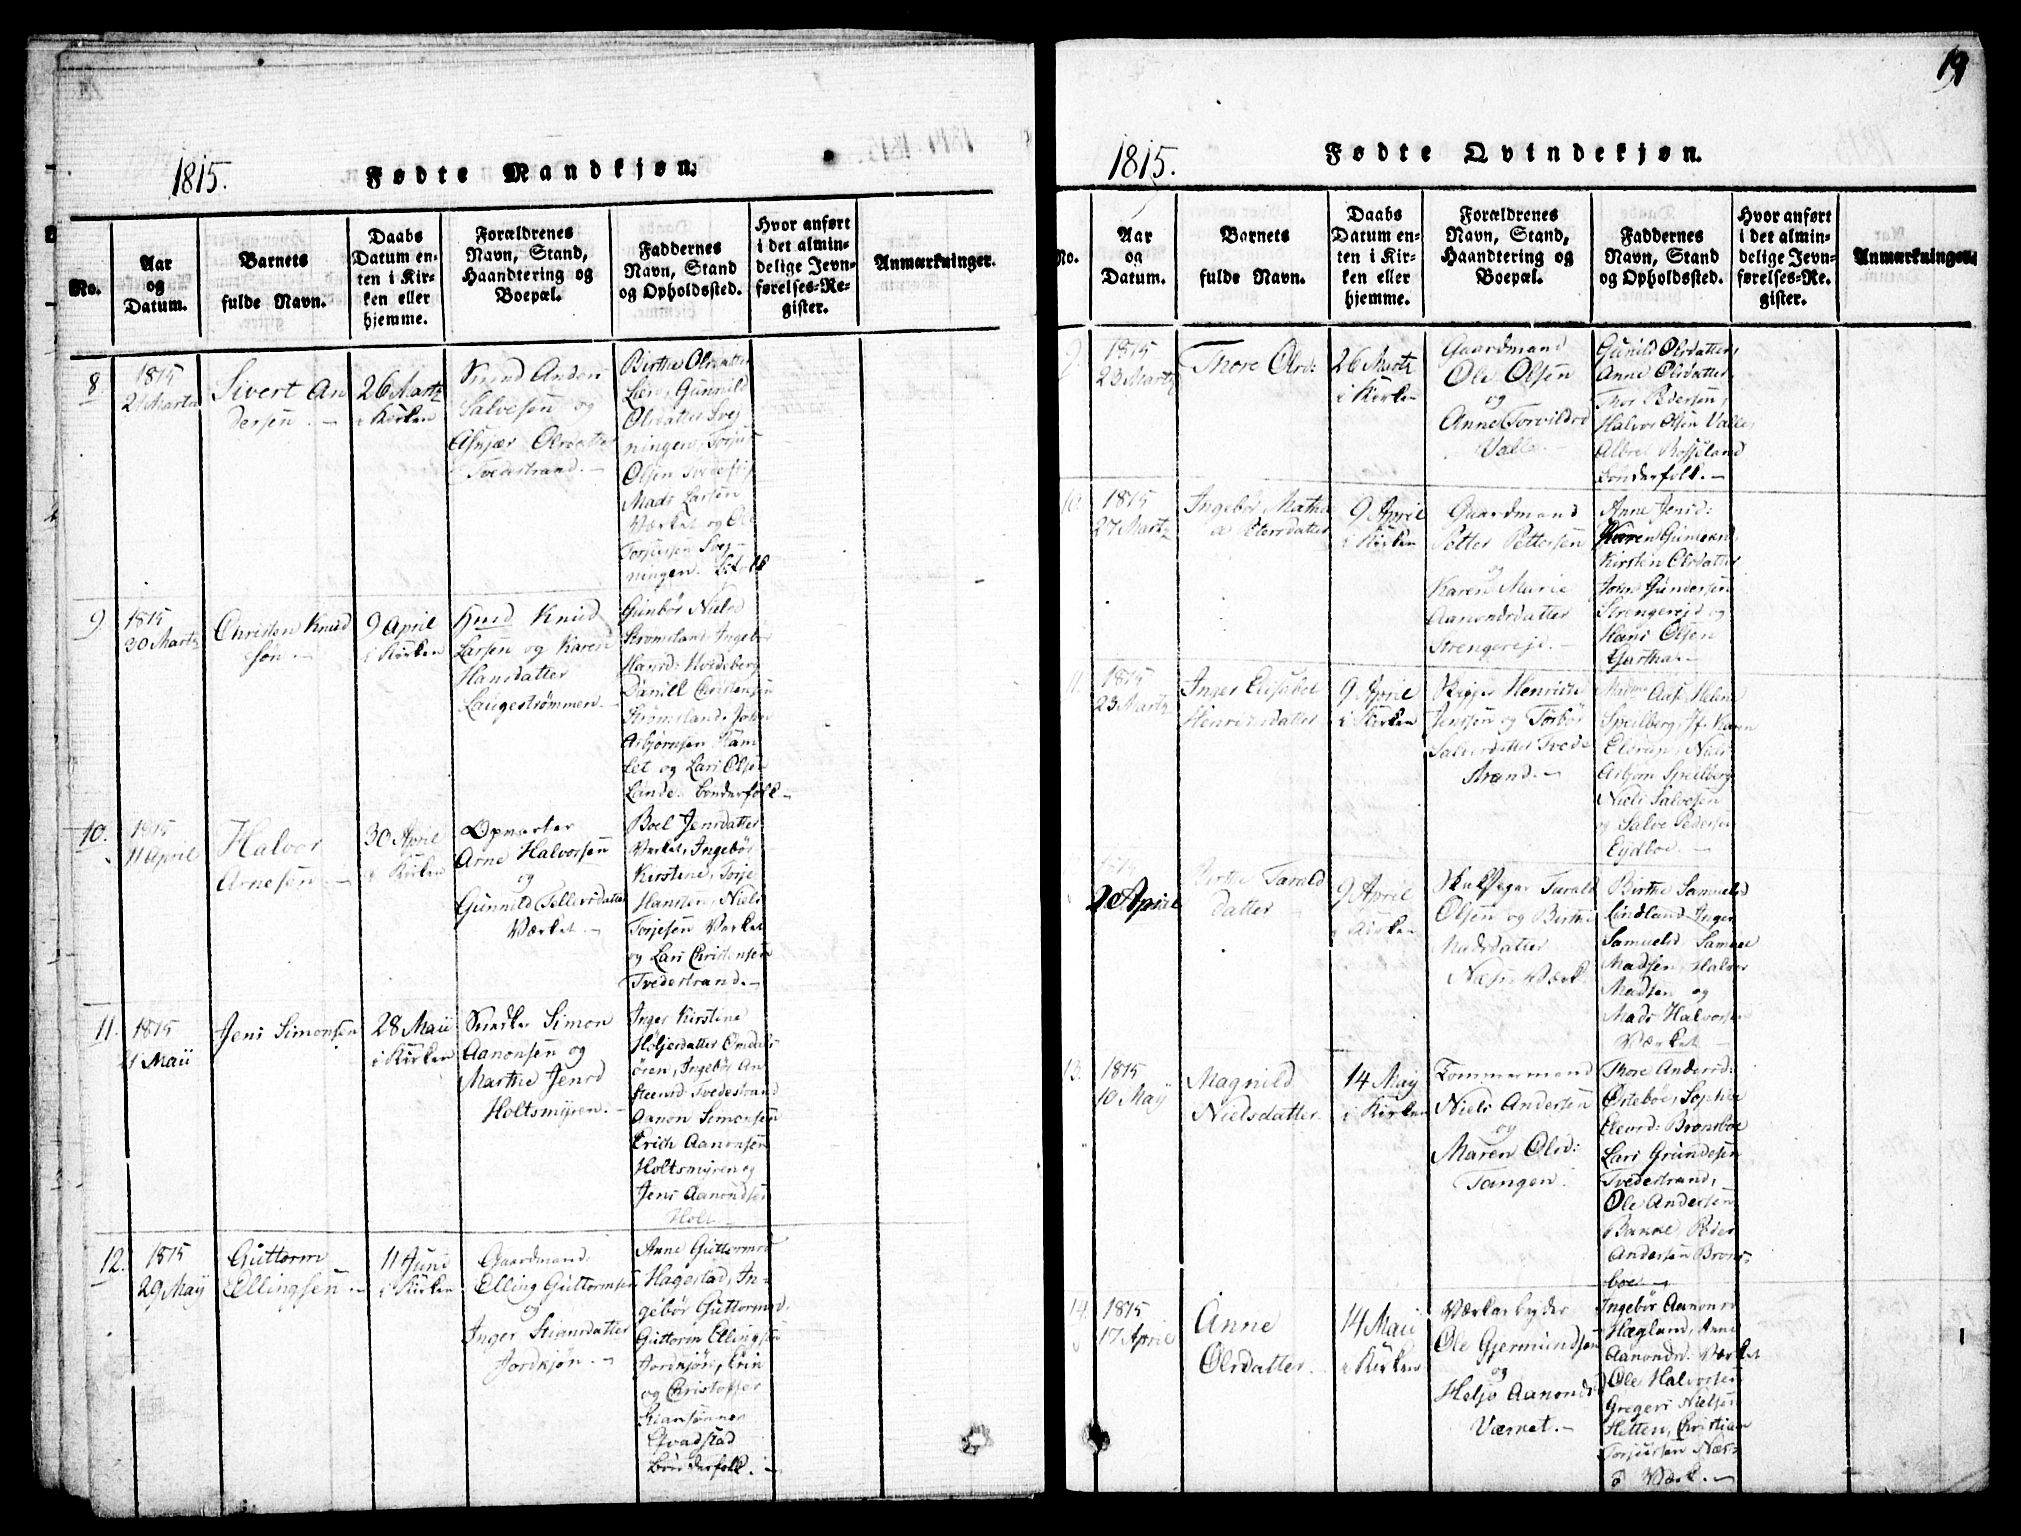 19
1815.
Fødte Mandkjøn.
No.
Aar
og
Datum.
Barnets
fulde Navn.
Daabs
Datum en-
ten i Kir-
ken eller
hjemme.
Forældrenes
Navn, Stand,
Haandtering og
Boepæl.
Faddernes
Navn, Stand
og Opholdssted.
Hvor anført
i det almin-
delige Jevn-
førelses-Re-
gister.
Anmærkninger.
8
1815
Martz
Sivert An
dersen
26 Martz
i Kirken
Anders
Salvesen og
Olsdatter
Tvedestrand.
Birthe Olsdatter
Lien, Gunnild
Olsdatter Svej
ningen, Torju
Olsen Tvedest
Mads Larsen
Værket og Ole
Torjusen Svej
ningen.
9.
1815
30 Martz
Christen Knud
søn
9 April
i Kirken
Knud
Larsen og Karen
Hansdatter
Laugestrømmen
Gunbør Niels
Strømsland Ingebor
Hansd: Hvedeberg
Daniell Christensen
Strømsland, John
Asbjørnsen
let og Lars Olsen
Lunde. Bønderfolk
10.
1815
11 April
Halvor
Arnesen
30 April
i Kirken
Arne Halvorsen
og
Gunnild Tellefsdatter
Værket
Boel Jensdatter
Værket, Ingebør
Kirstine, Torje
Hansen, Niels
Torjesen Værket
og Lars Christensen
Tvedestrand.
11.
1815
Maii
Jens Simonsen
28 Maii
i Kirken
Snedker Simon
Aanonsen og
Marthe Jensd
Holtsmyren.
Inger Kirstine
Holjersdatter Omdals
øren, Ingebør An
steensd Tvedestrand
Aanon Simonsen
Erich Aanonsen
Holtsmyren og
Jens Aanondsen
Holt
12.
1815
29 May
Guttorm
Ellingsen
11 Juni
i Kirken
Gaardmand
Elling Guttormsen
og
Inger Stiansdatter
Jordkjøn
Anne Guttormsd
Hagestad, In-
gebør Guttormsd.
Guttorm Ellingsen
Jordkjøn,
og Christoffer
Stiansønner
Qvadstad
Bønderfolk.
1815.
Fødte Qvindekjøn.
No.
Aar
og
Datum.
Barnets
fulde Navn.
Daabs
Datum en-
ten i Kir-
ken eller
hjemme.
Forældrenes
Navn, Stand,
Haandtering og
Boepæl.
Faddernes
Navn, Stand
og Opholdssted.
Hvor anført
i det almin-
delige Jevn-
førelses-Re-
gister.
Anmærkninger.
9
1815
23 Martz
Thore Olsd:
26 Martz
i Kirken
Gaardmand
Ole Olsen
og
Anne Torvildsd
Valle.
Gunild Olsdatter,
Anne Olsdatter,
Thor Pedersen,
Halvor Olsen Valle,
Albret Rossland
Bønderfolk.
10
1815
27 Martz
Ingebør Mathe
a Petersdatter
9 April
i Kirken
Gaardmand
Petter Pettersen
og
Karen Marie
Aanondsdatter
Strengereid.
Anne Jensd:
Karen
Kirsten Olsdatter
Gundersen
Strengereid og
Hans Olsen
Gartha
11.
1815
23 Martz
Inger Elisabet
Henrichsdatter
9 April
i Kirken
Henrich
Jensen og Torbør
Salvesdatter Tvede
strand.
Helene
Speilberg, Jfr Karen
Niels
Asbjørn Speilberg
Niels Salvesen
og Salve Pedersen
Eydboe.
1815
2 April
Birthe Tarald
datter
9 April
i Kirken
Tarald
Olsen og Birthe
Madsdatter
Næs Værk
Birthe Samuelsd
Lindland, Inger
Samuelsd, Samuel
Madsen, Halvor
Madsen og
Mads Halvorsen
Værket
13.
1815
10 May
Magnild
Nielsdatter.
14 May
i Kirken
Tømmermand
Niels Andersen
og
Maren Olsd:
Tangen.
Thore Andersd:
Østebøe, Sophie
Olevsd: Bronsboe
Lars Gundersen
Tvedestrand,
Ole Andersen
Bakke, Peder
Andersen Brons-
boe
14.
1815
17 April
Anne
Olsdatter.
14 Maii
i Kirken
Værksarbeyder
Ole Gjermundsen
og
Helje Aanondsd
Værket.
Ingebør Aanonsd
Hægland, Anne
Aanondsd. Værket
Ole Halvorsen
Gregers Nielsen
Hetten, Christian
Torjusen Næs-
Værk.